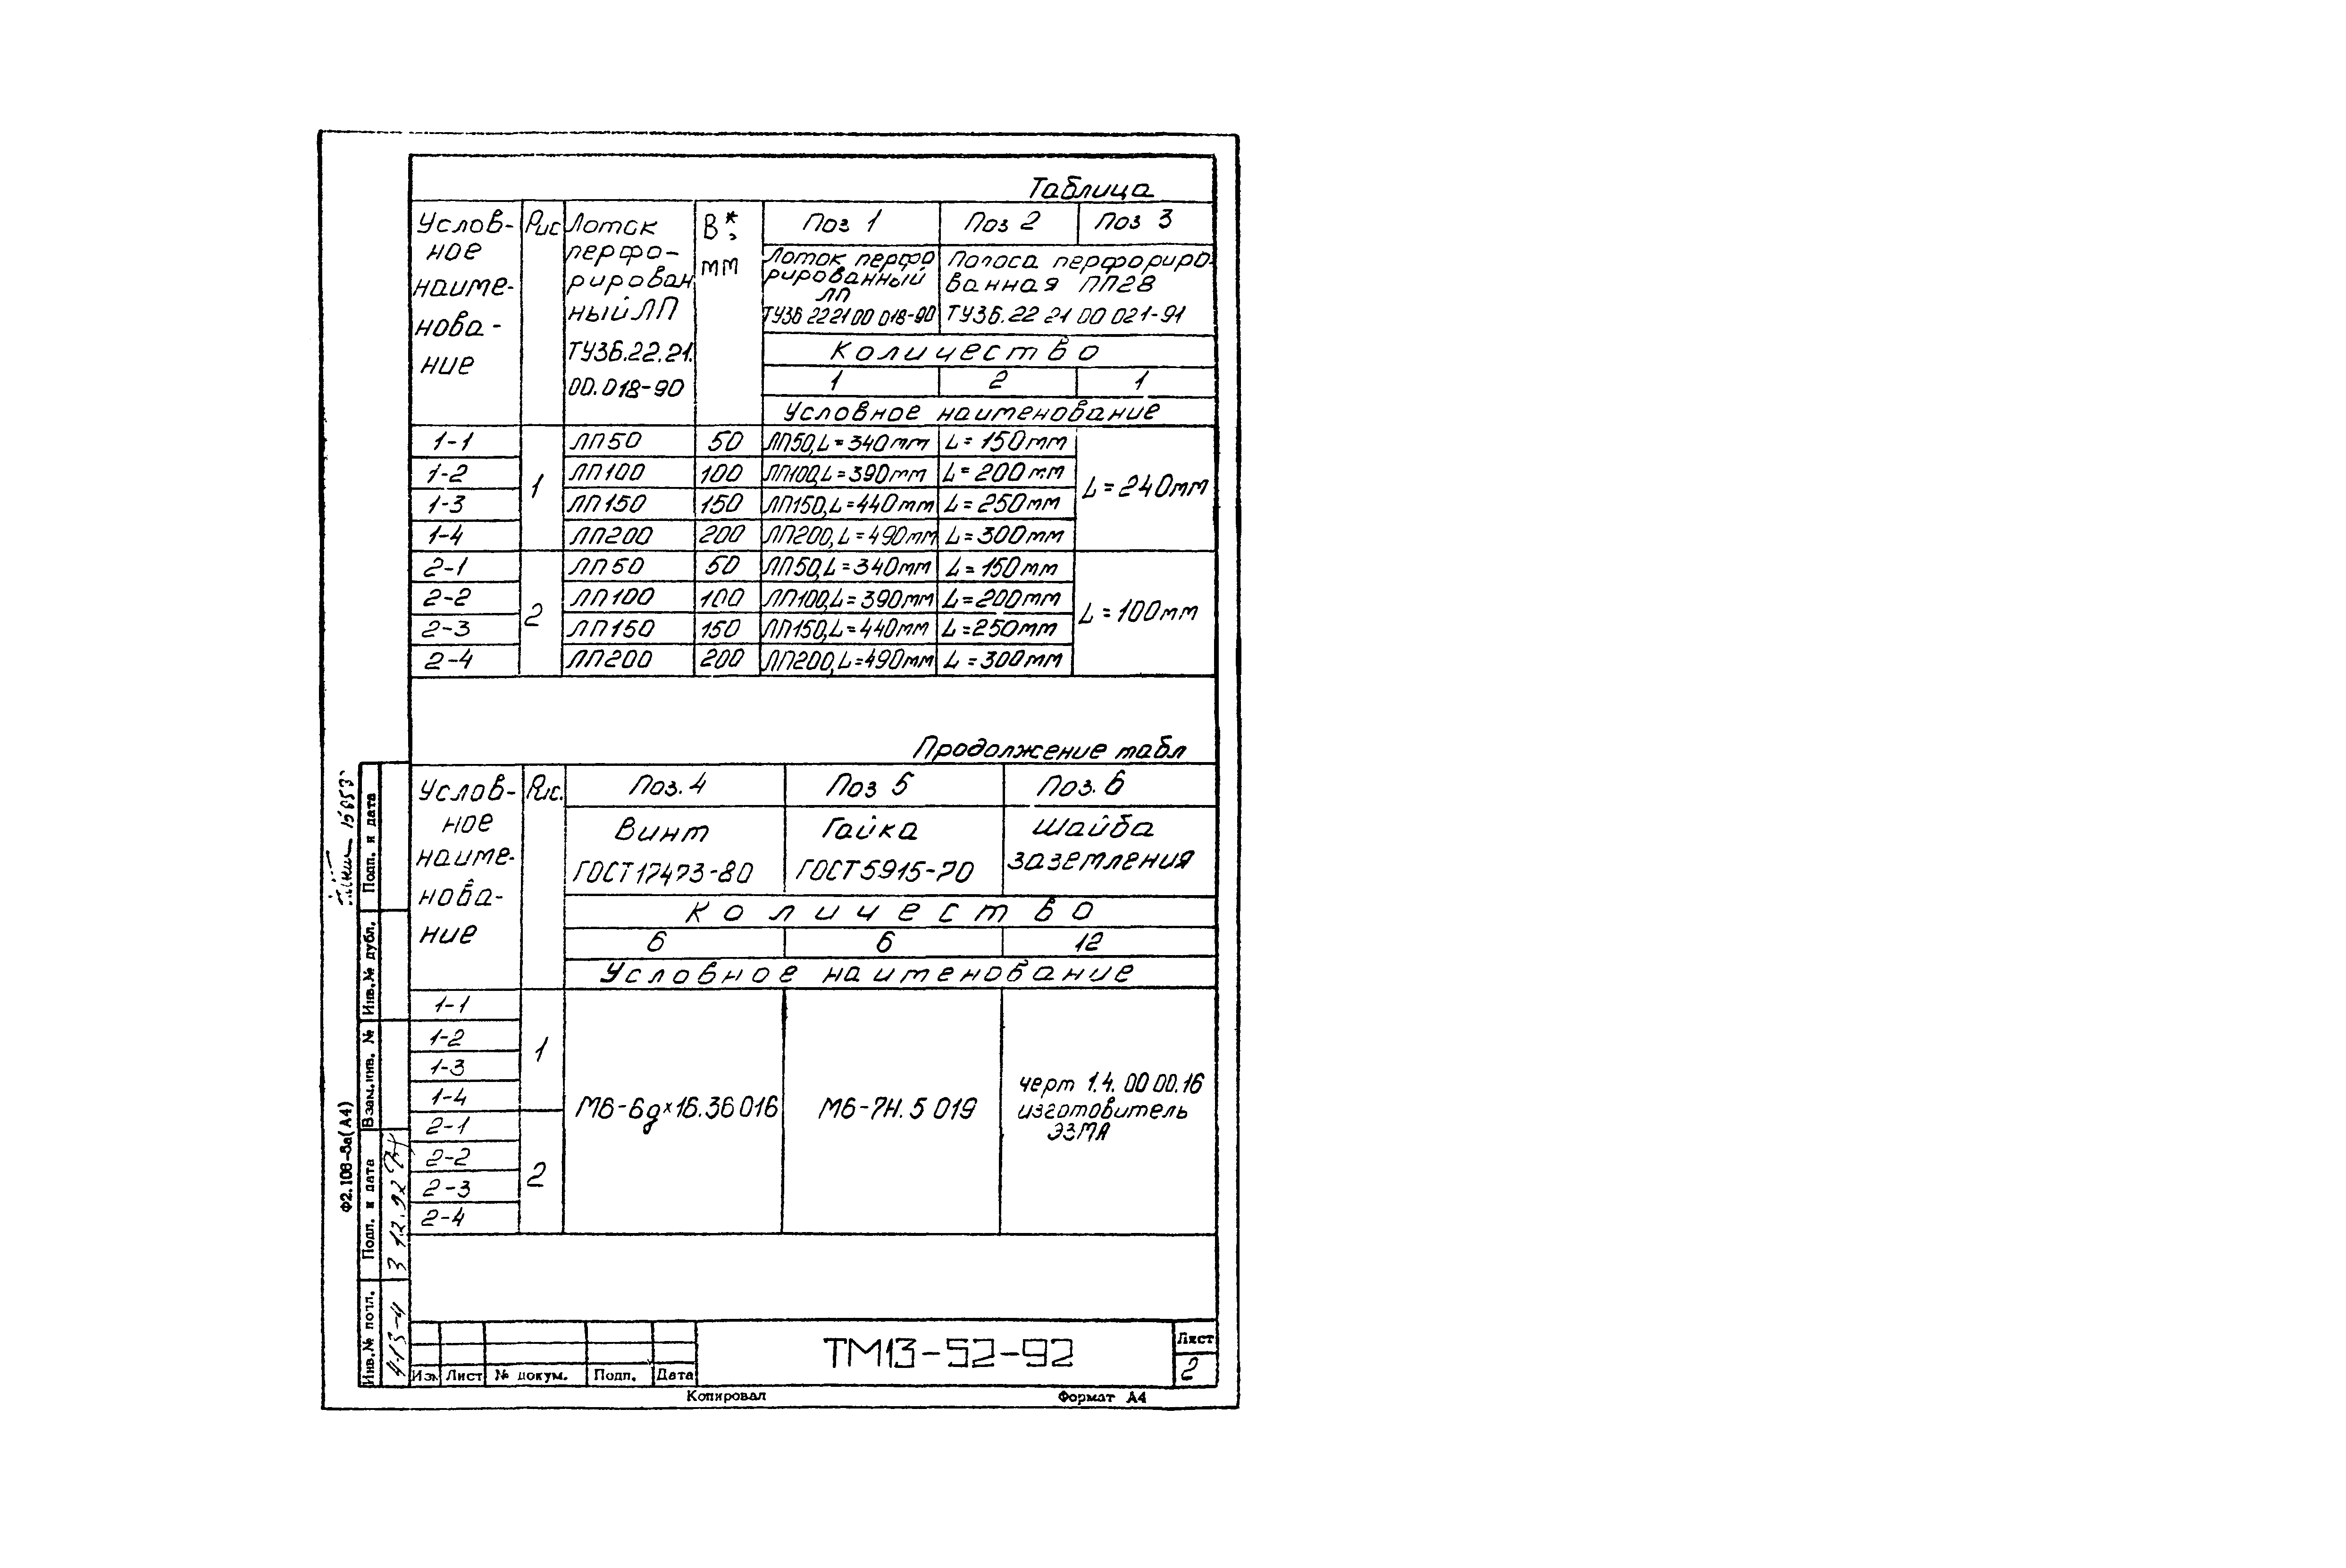 Таблица
Услов-
ное
наиме-
нова-
ние
Рис
Лоток
перфо-
рирован
ный ЛП
ТУ36.22.21.
00.018-90
В*,
мм
Поз 1
Поз 2
Поз 3
Лоток перфо
рированный
ЛП
ТУ36 22 21 00 018-90
Полоса перфориро-
ванная ПП28
ТУ36.22 21 00 021-91
Количество
1 2 1
Условное наименование
1-1 ЛП50 50 ЛП50, L=340мм L=150мм
1-2 ЛП100 100 ЛП100, L=390мм L=200мм
1 L=240мм
1-3 ЛП150 150 ЛП150, L=440мм L=250мм
1-4 ЛП200 200 ЛП200, L=490мм L=300мм
2-1 ЛП50 50 ЛП50, L=340мм L=150мм
2-2 ЛП100 100 ЛП100, L=390мм L=200мм
2 L=100мм
2-3 ЛП150 150 ЛП150, L=440мм L=250мм
2-4 ЛП200 200 ЛП200, L=490мм L=300мм
Продолжение табл
Услов-
ное
наиме-
нова-
ние
Рис.
Поз. 4
Поз 5
Поз. 6
Винт
ГОСТ 17473-80
Гайка
ГОСТ 5915-70
Шайба
заземления
Количество
6 6 12
Условное наименование
1-1
1-2
1-3
1-4
2-1
2-2
2-3
2-4
1
2
М6-6g×16.36 016
М6-7Н.5 019
черт 1.4. 00 00.16
изготовитель
ЭЗМА
Ф2.106-5а(А4)
Подп. и дата
Инв.№ дубл.
Взам.инв. №
Подп. и дата
3 12.92
Инв.№ подл.
Изм Лист № докум. Подп. Дата
ТМ13-52-92
Лист
2
Копировал
Формат А4